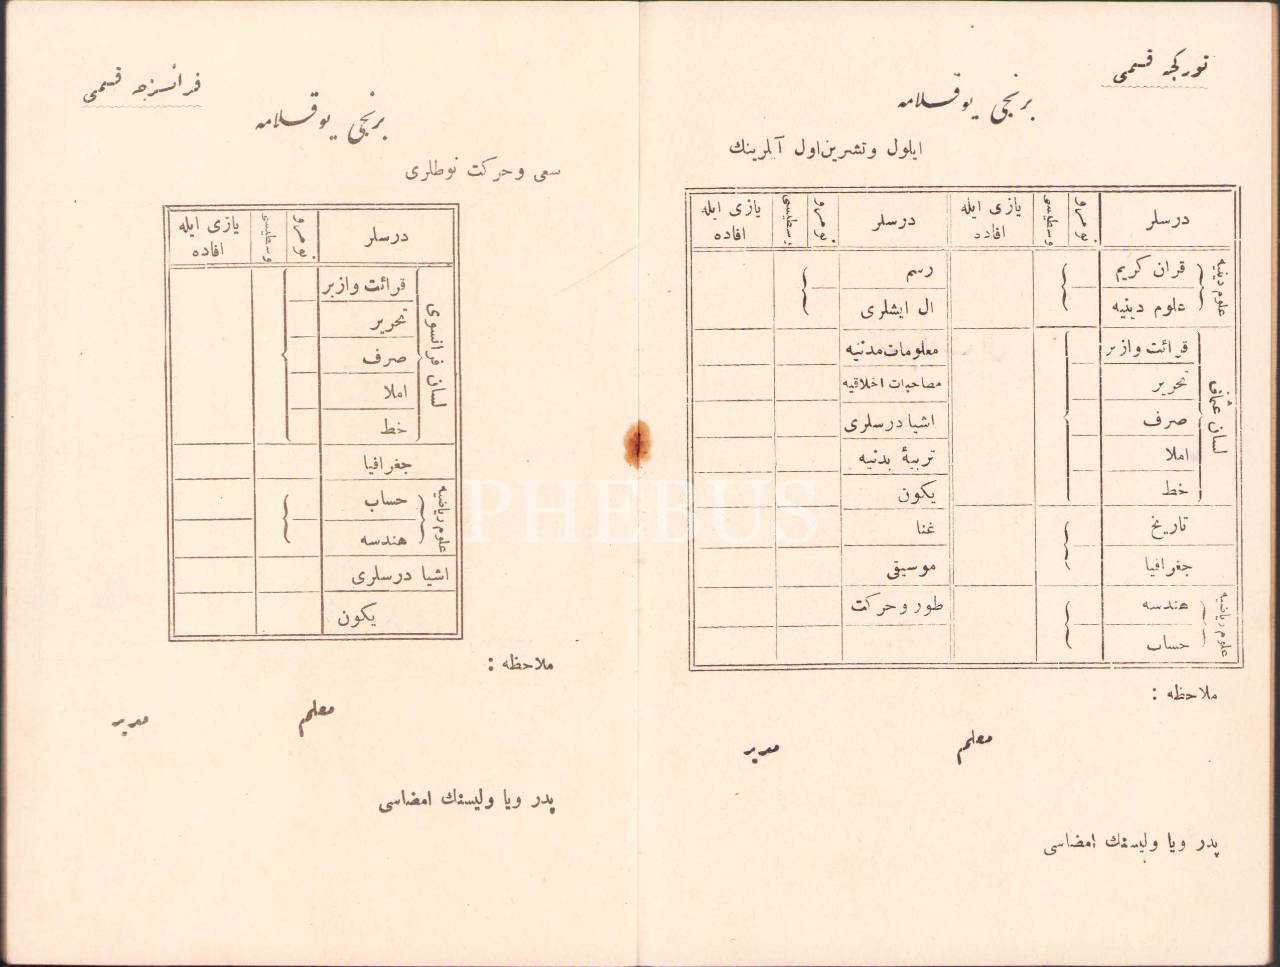 تورکجه قسمی
برنجی یوقلامه
ایلول و تشرین اول آیلرینك
درسلر
نومرو
وسطیسی
یازی ایله افاده
درسلر
نومرو
وسطیسی
یازی ایله افاده
علوم دینیه
قران کریم
علوم دینیه
لسان عثمانی
قرائت وازبر
تحریر
صرف
املا
خط
تاریخ
جغرافیا
علوم ریاضیه
هندسه
حساب
رسم
ال ایشلری
معلومات مدنیه
مصاحبات اخلاقیه
اشیا درسلری
تربیهٔ بدنیه
یکون
غنا
موسیقی
طور و حرکت
ملاحظه :
معلم
مدیر
پدر ویا ولیسنك امضاسی
فرانسزجه قسمی
برنجی یوقلامه
سعی و حرکت نوطلری
درسلر
نومرو
وسطیسی
یازی ایله افاده
لسان فرانسوی
قرائت وازبر
تحریر
صرف
املا
خط
جغرافیا
علوم ریاضیه
حساب
هندسه
اشیا درسلری
یکون
ملاحظه :
معلم
مدیر
پدر ویا ولیسنك امضاسی
PHEBUS